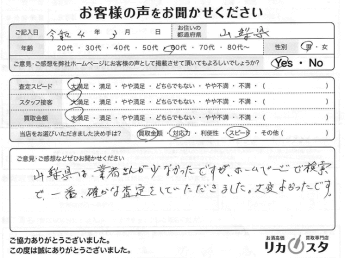 お客様の声をお聞かせください
ご記入日 令和 4年 3月 日 お住いの都道府県 山梨県
年齢 20代・30代・40代・50代・60代・70代・80代〜 性別 男・女
ご意見・ご感想を弊社ホームページにお客様の声として掲載させて頂いてもよろしいでしょうか? Yes・No
査定スピード 大満足・満足・やや満足・どちらでもない・やや不満・不満・( )
スタッフ接客 大満足・満足・やや満足・どちらでもない・やや不満・不満・( )
買取金額 大満足・満足・やや満足・どちらでもない・やや不満・不満・( )
当店をお選びいただきました決め手は? 買取金額・対応力・利便性・スピード・その他( )
ご意見・ご感想などぜひお聞かせください
山梨県は、業者さんが少なかったですが、ホームページで検索
で、一番、確かな査定をしていただきました。大変よかったです。
ご協力ありがとうございました。
この度は誠にありがとうございました。
お酒高価 買取専門店
リカスタ